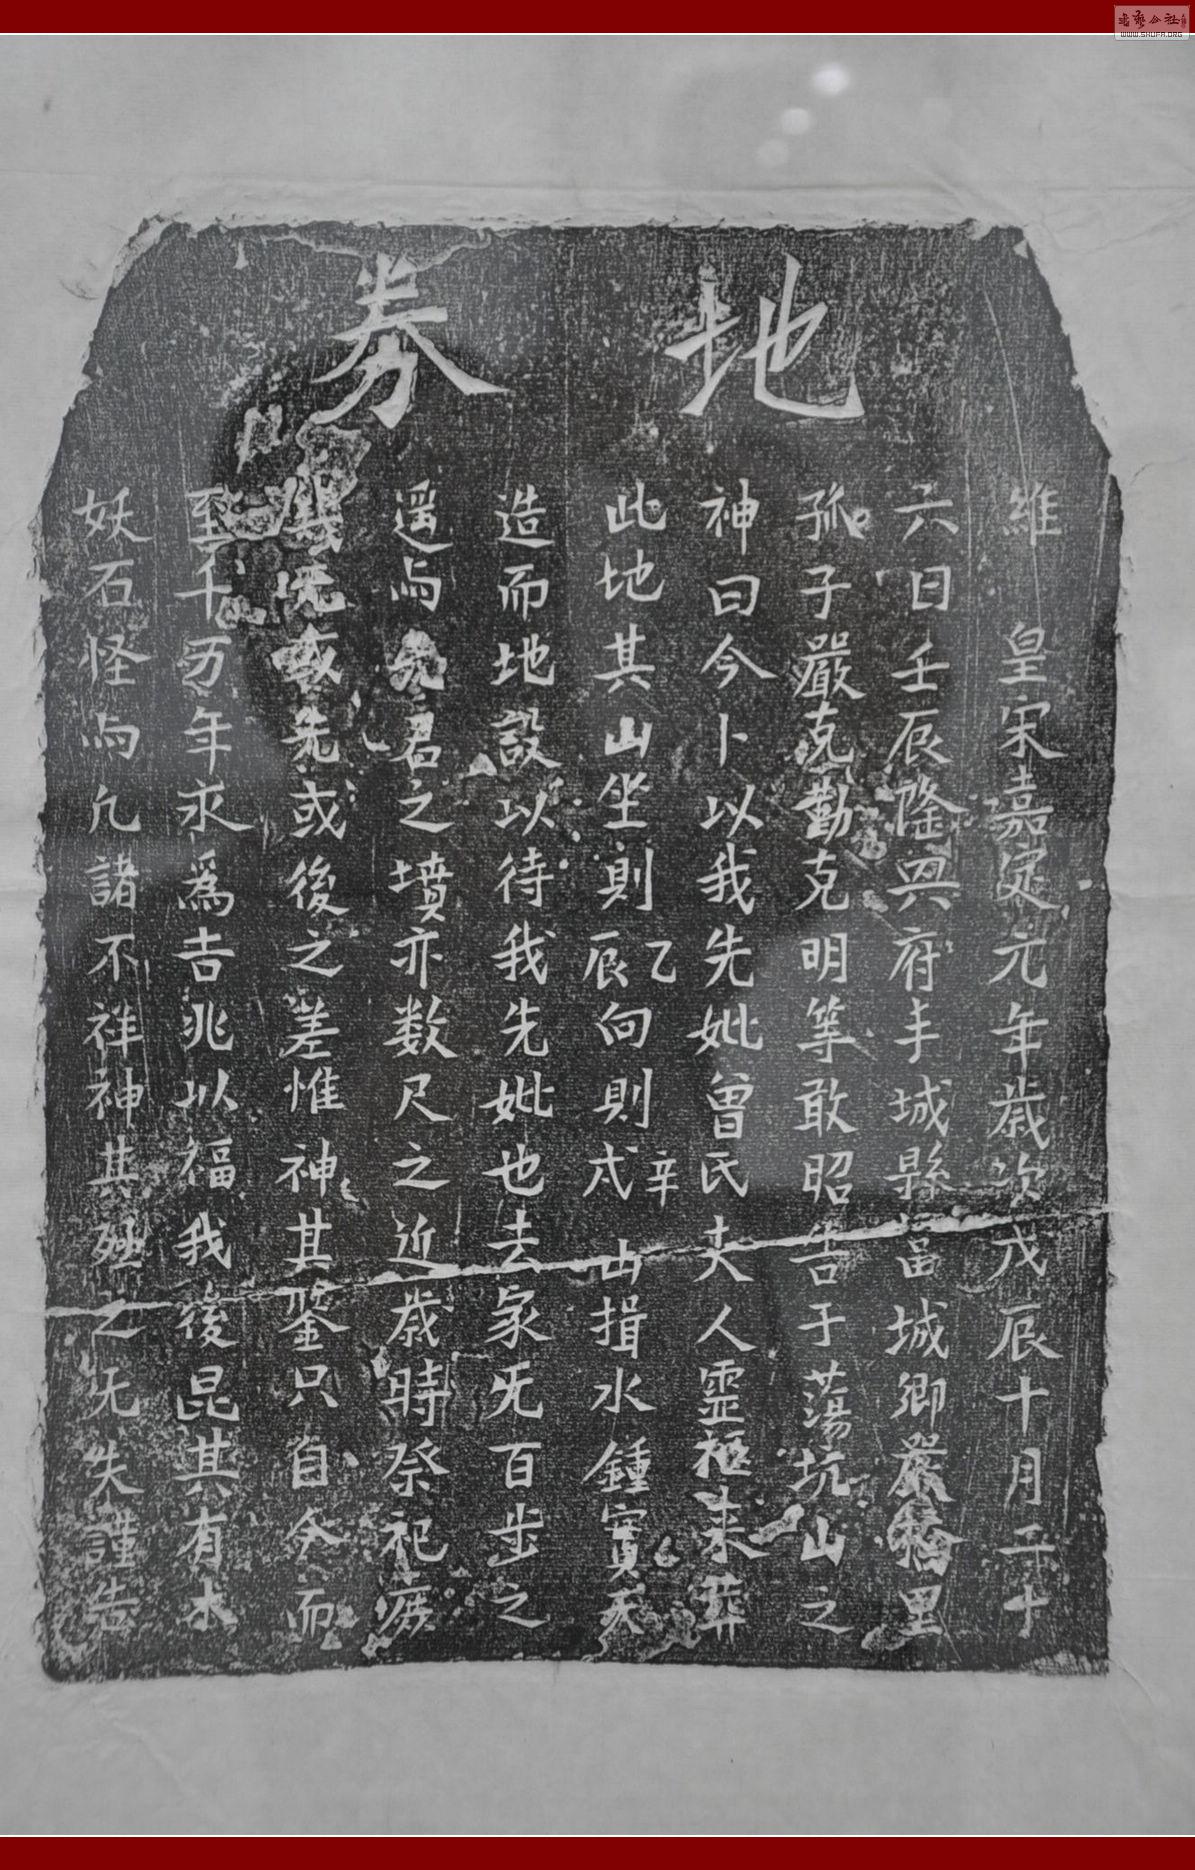 地券
維 皇宋嘉定元年歲次戊辰十月二十
六日壬辰隆興府丰城縣富城鄉嚴里
孤子嚴克勤克明等敢昭告于蕩坑山之
神曰今卜以我先妣曾氏夫人靈柩来葬
此地其山坐則辰乙向則戌辛山揖水鍾實天
造而地設以待我先妣也去家无百步之
遥与先君之墳亦数尺之近歲時祭祀庶
幾无或先或後之差惟神其鑒只自今而
至千万年永爲吉兆以福我後昆其有木
妖石怪与凢諸不祥神其殛之无失謹告
書法公社
WWW.SHUFA.ORG